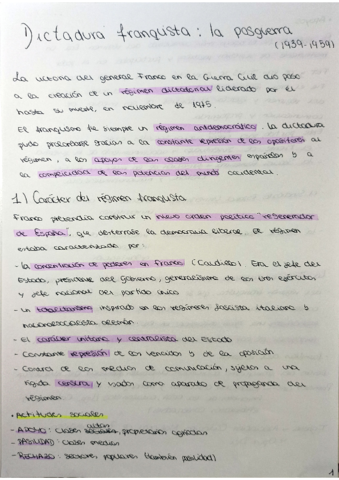 Dictadura franquista: la posguerra
(1939-1959)
La victoria del general Franco en la Guerra Civil dio paso
a la creación de un régimen dictatorial liderado por él
hasta su muerte, en noviembre de 1975.
El franquismo fue siempre un régimen antidemocrático. La dictadura
pudo prolongarse gracias a la constante represión de los opositores al
régimen, a los apoyos de las clases dirigentes españolas y a
la complicidad de las potencias del mundo occidental.
1) Carácter del régimen franquista
Franco pretendía construir un nuevo orden político "regenerador
de España", que desterrase la democracia liberal. El régimen
estaba caracterizado por:
- la concentración de poderes en Franco (Caudillo). Era el jefe del
Estado, presidente del gobierno, generalísimo de los tres ejércitos
y jefe nacional del partido único
- un totalitarismo inspirado en los regímenes fascista italiano y
nacionalsocialista alemán
- El carácter unitario y centralista del Estado
- Constante represión de los vencidos y de la oposición
- Control de los medios de comunicación, sujetos a una
rígida censura, y usados como aparato de propaganda del
régimen
• Actitudes sociales
- APOYO: clases altas, propietarios agrícolas
- PASIVIDAD: clases medias
- RECHAZO: sectores populares (también pasividad)
1